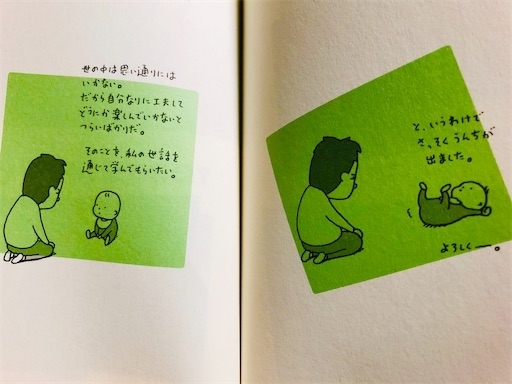 世の中は思い通りには
いかない。
だから自分なりに工夫して
どうにか楽しんでいかないと
つらいばかりだ。
そのことを、私の世話を
通じて学んでもらいたい。
と、いうわけで
さっそくうんちが
出ました。
よろしくー。